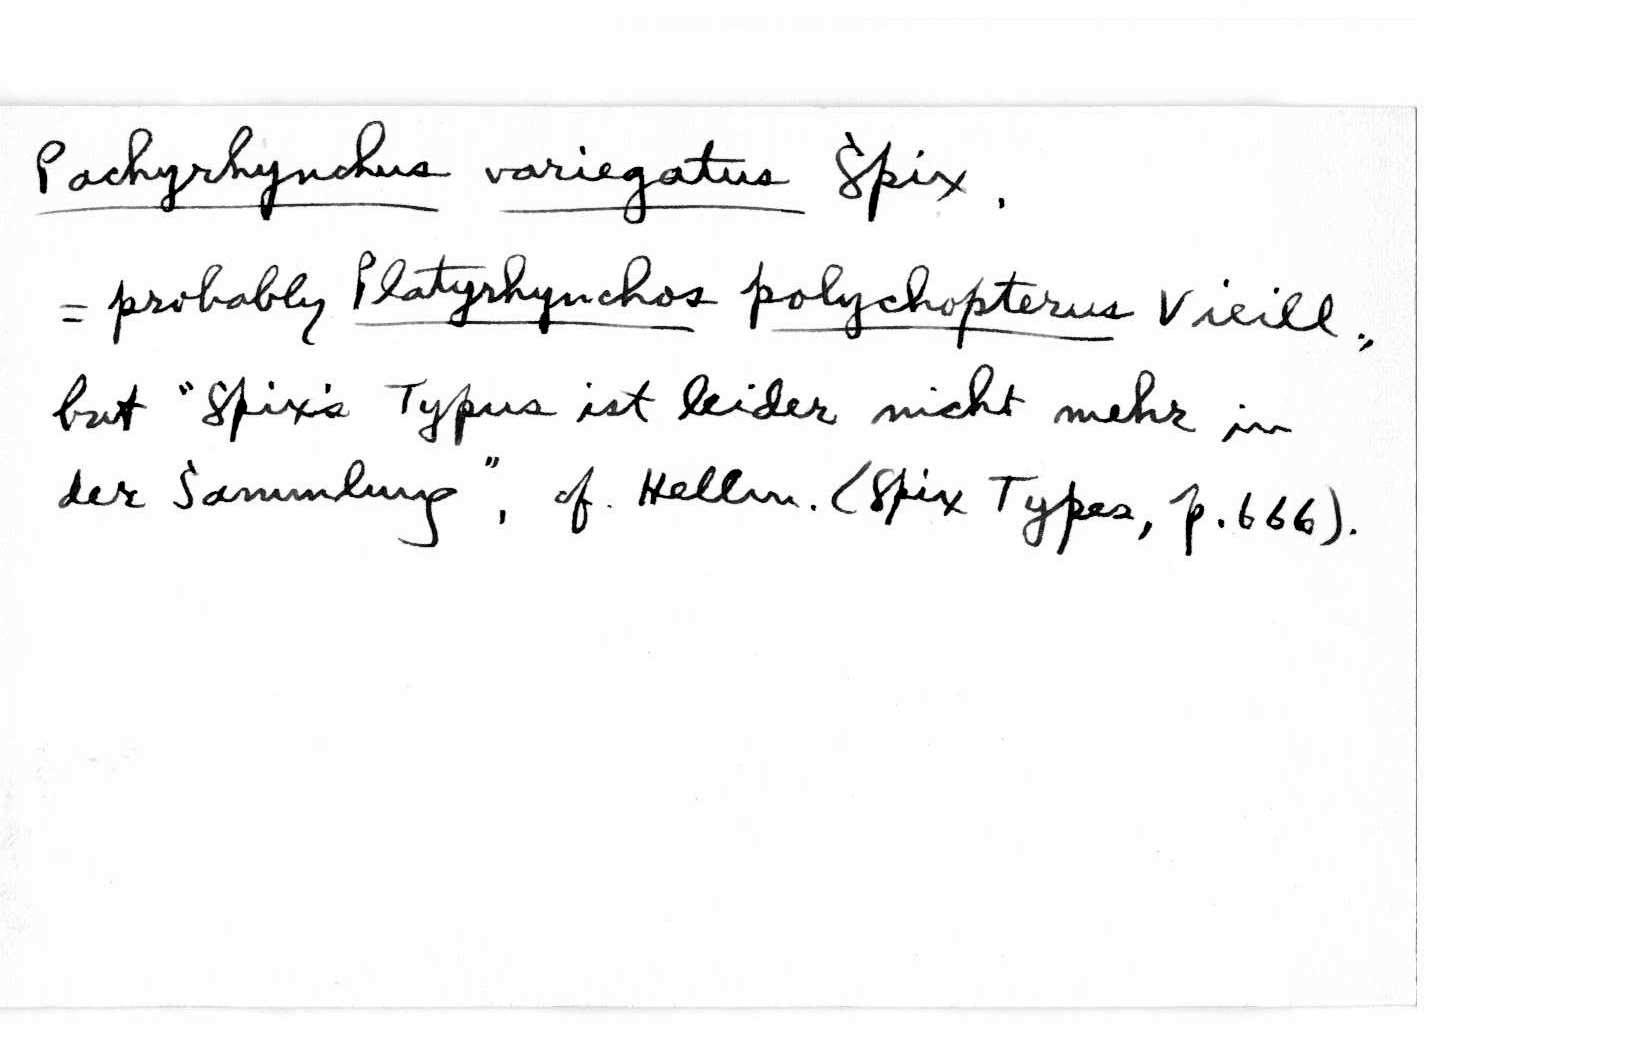 Pachyrhynchus variegatus Spix,
= probably Platyrhynchos polychopterus Vieill.,
but "Spix's Typus ist leider nicht mehr in
der Sammlung", cf. Hellm. (Spix Types, p. 666).